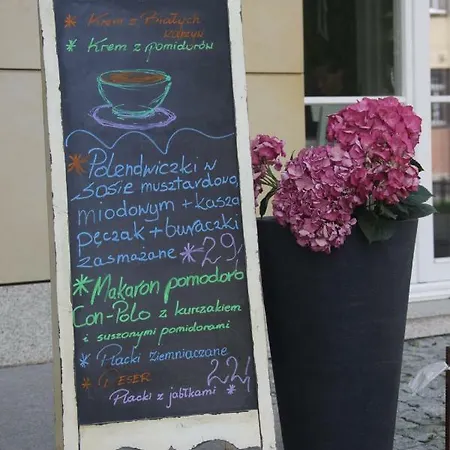 * Krem z Białych
warzyw
* Krem z pomidorów
* Polendwiczki w
sosie musztardowo
miodowym + kasza
pęczak + buraczki
zasmażane * 29,
* Makaron pomodoro
Con-Polo z kurczakiem
i suszonymi pomidorami
* Placki ziemniaczane
* Deser 22,
Placki z jabłkami *